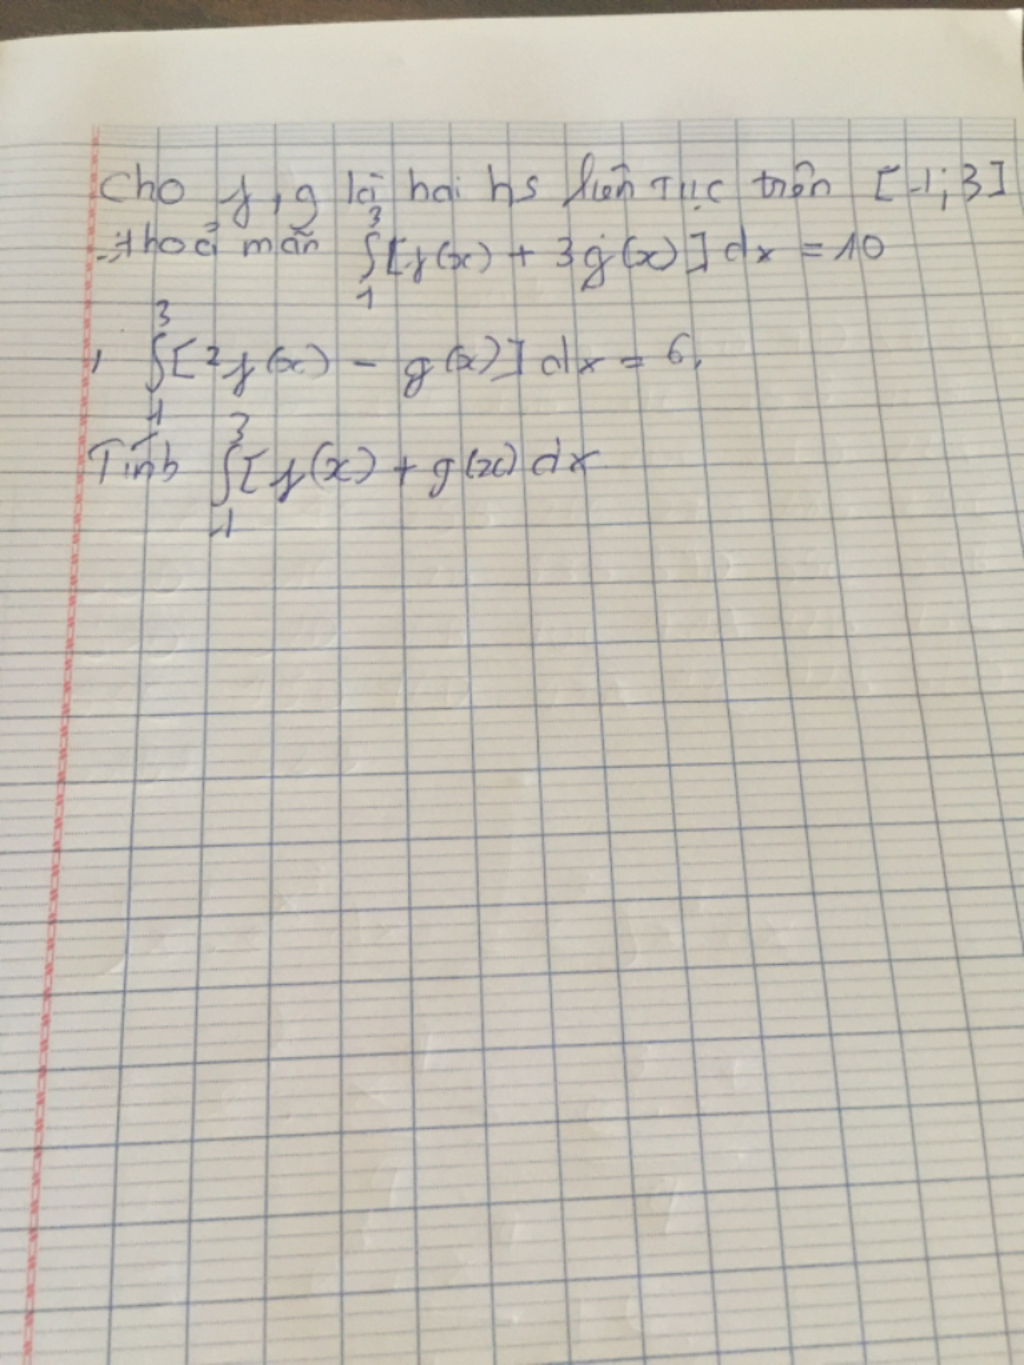 Cho f, g là hai hs liên tục trên [-1; 3]
thoả mãn ∫₁³[f(x) + 3g(x)]dx = 10
, ∫₋₁³[2f(x) - g(x)]dx = 6,
Tính ∫₋₁³[f(x) + g(x) dx